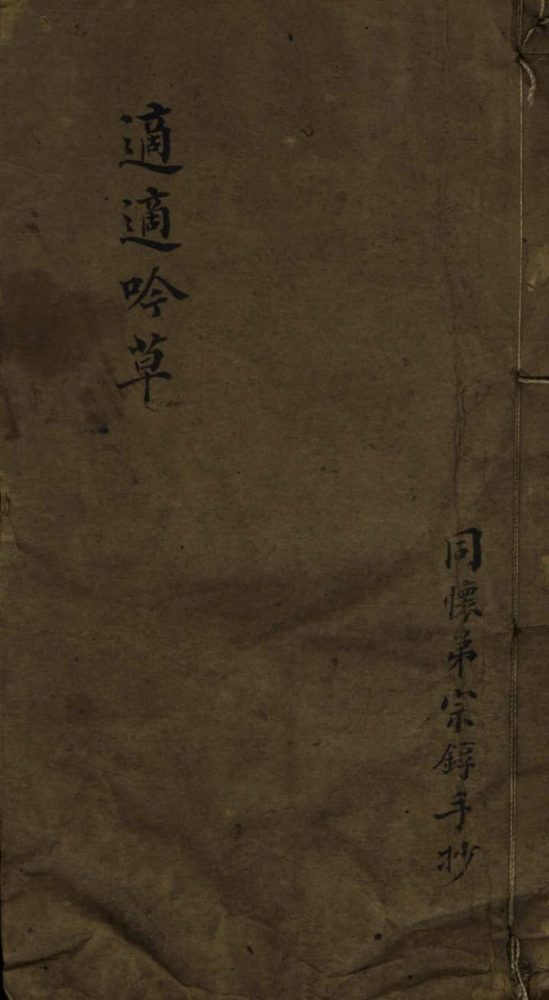 同懷弟宗錞手抄
適適吟草